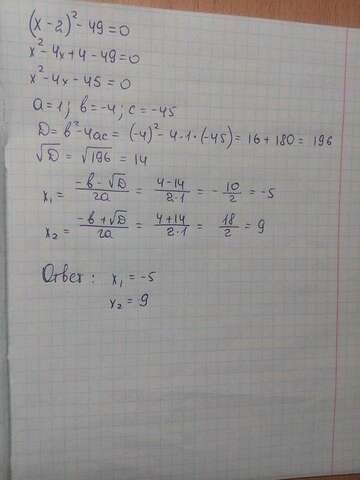 (x-2)²-49=0
x²-4x+4-49=0
x²-4x-45=0
a=1; b=-4; c=-45
D=b²-4ac=(-4)²-4·1·(-45)=16+180=196
√D=√196=14
x₁=(-b-√D)/2a=(4-14)/2·1=-10/2=-5
x₂=(-b+√D)/2a=(4+14)/2·1=18/2=9
Ответ: x₁=-5
x₂=9